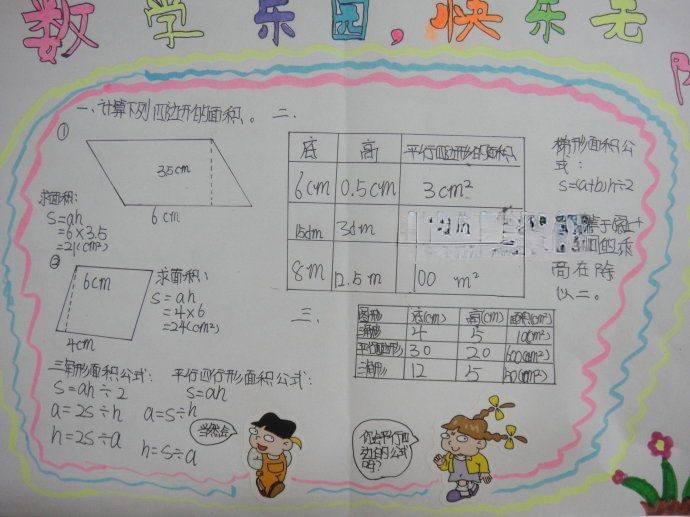 数学乐园,快乐无
一、计算下列四边形的面积。
①
3.5cm
6cm
求面积:
S=ah
=6×3.5
=21(cm²)
②
6cm
4cm
求面积:
S=ah
=4×6
=24(cm²)
三角形面积公式:
S=ah÷2
a=2S÷h
h=2S÷a
平行四行形面积公式:
S=ah
a=S÷h
h=S÷a
二、
底 高 平行四边形的面积
6cm 0.5cm 3cm²
15dm 3dm
8m 12.5m 100 m²
梯形面积公
式:
S=(a+b)h÷2
高在除
以二。
三、
图形 底(cm) 高(cm) 面积(cm²)
三角形 4 5 10(cm²)
平行四边形 30 20 600(cm²)
三角形 12 5
当然会
你会平行四
边的公式
吗?